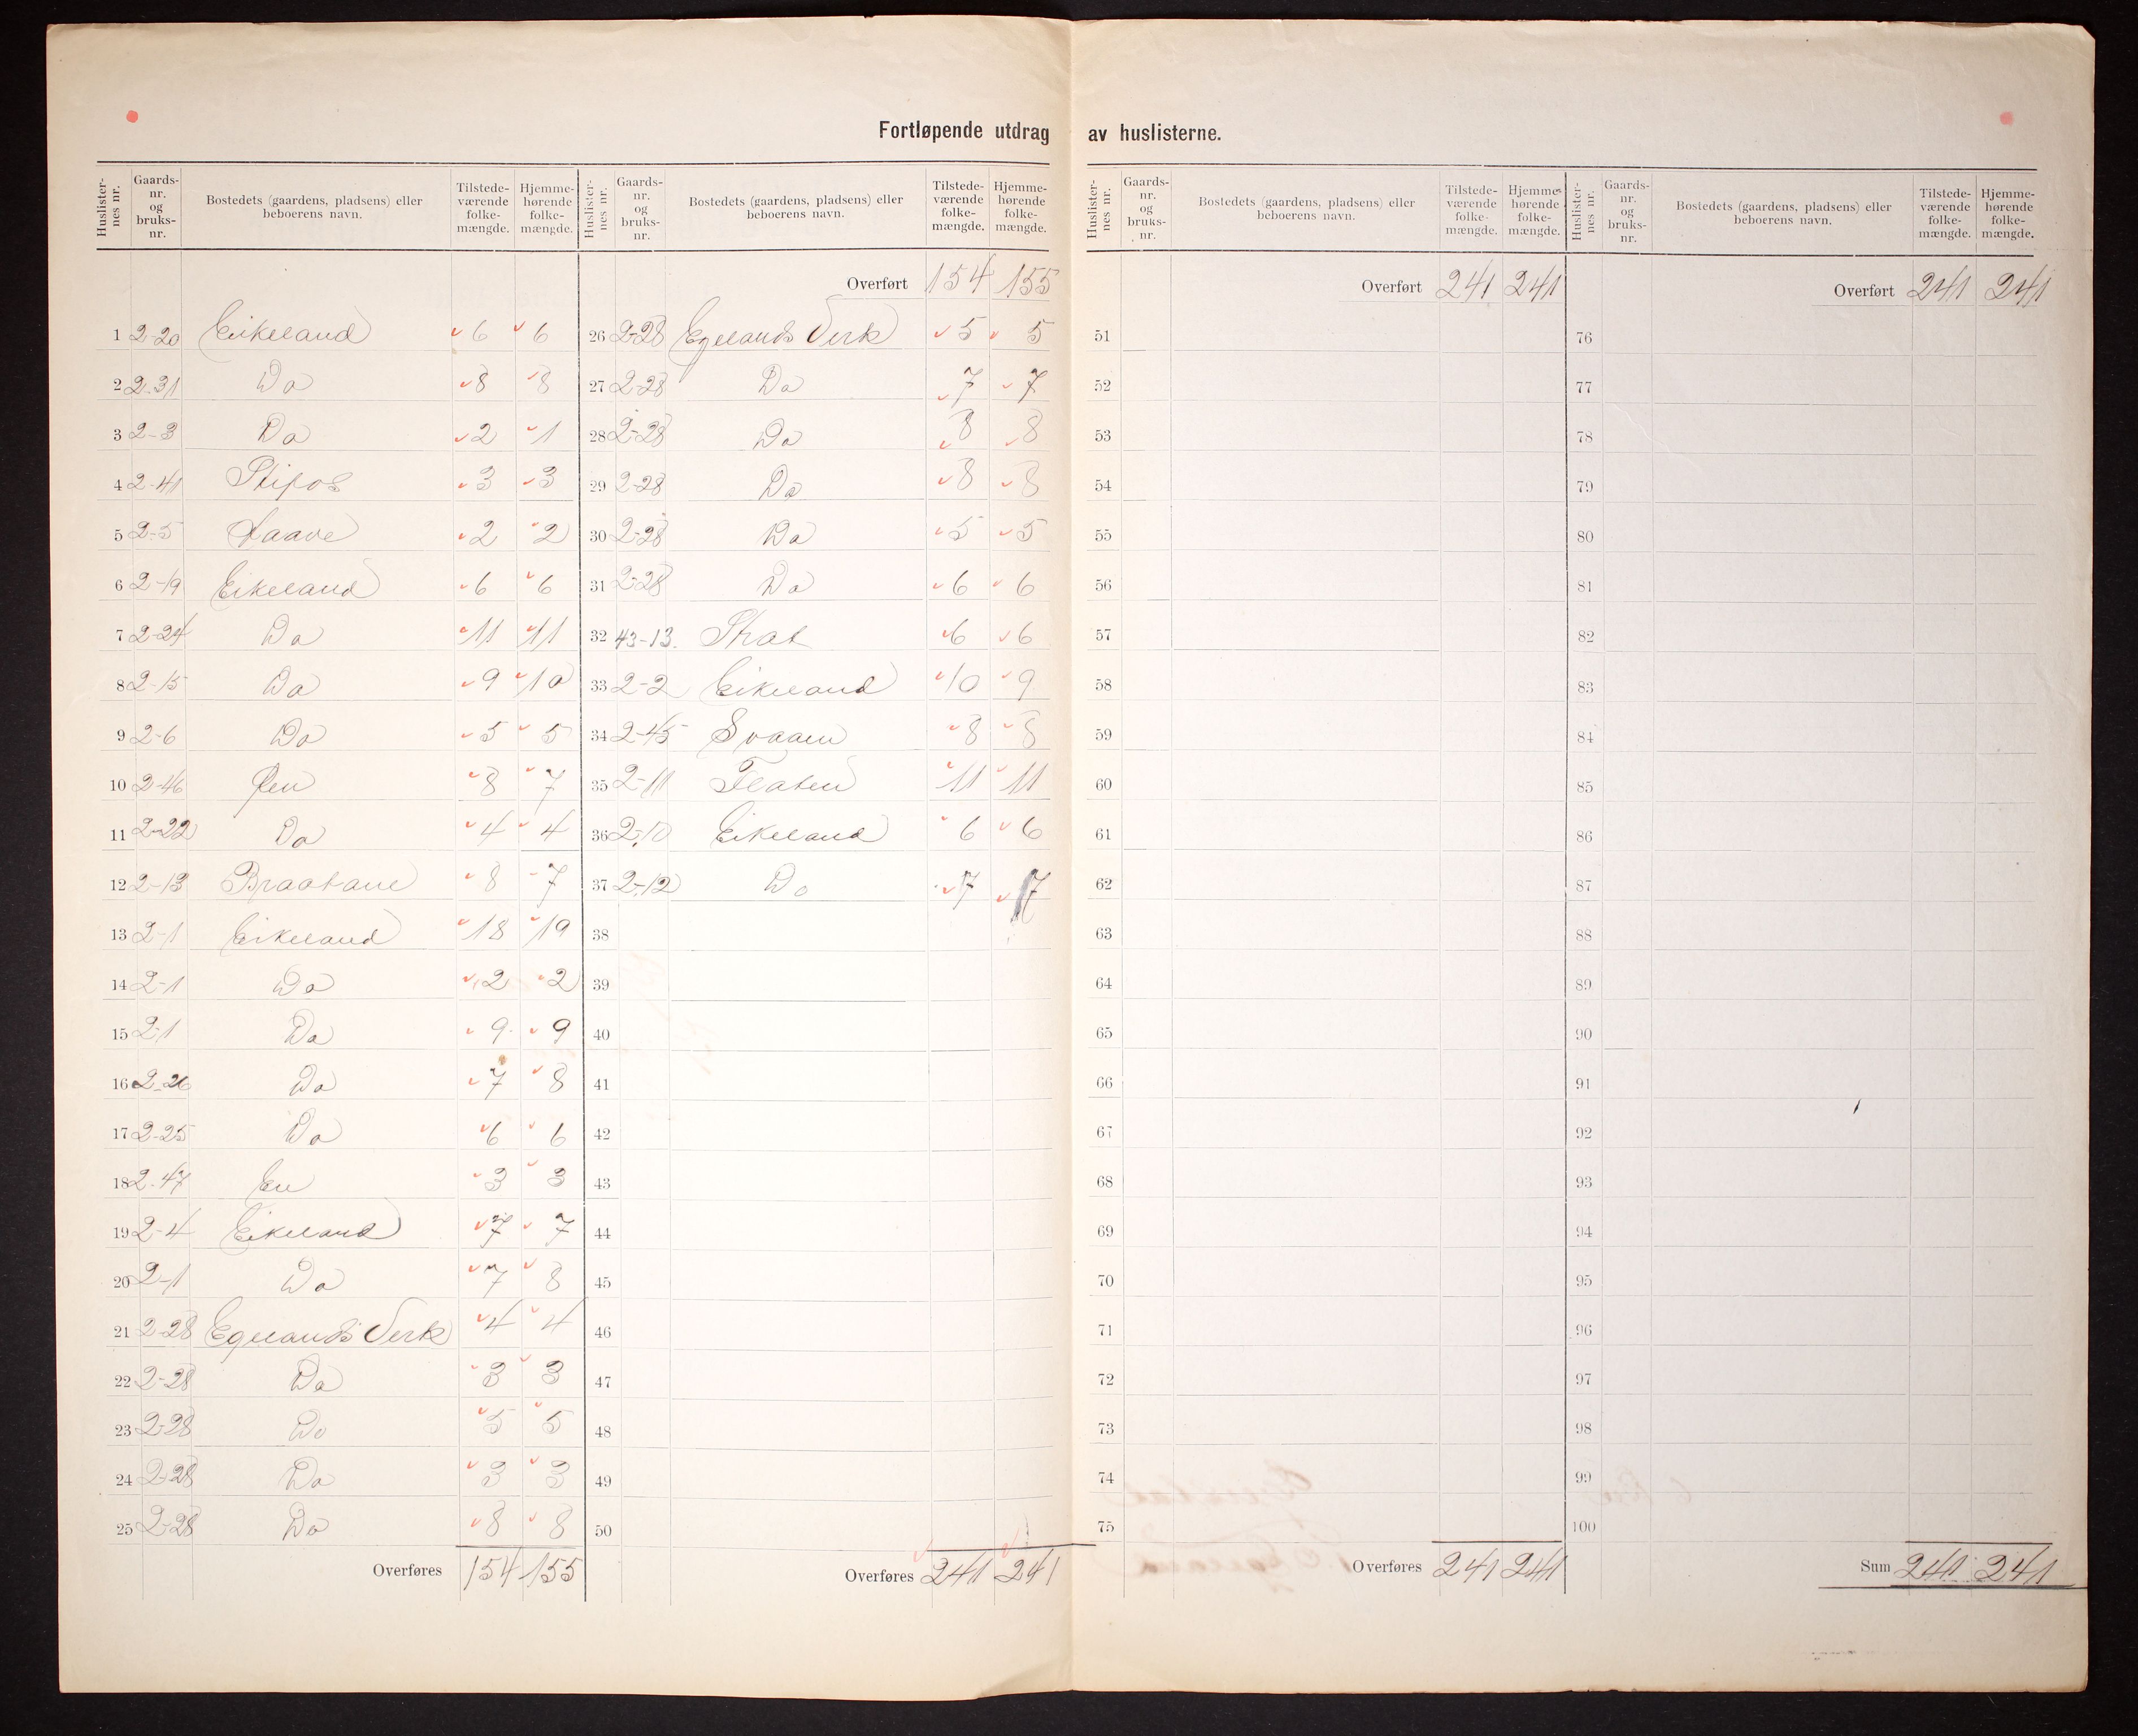 Fortløpende utdrag av huslisterne.
Huslister-nes nr. Gaards-nr. og bruks-nr. Bostedets (gaardens, pladsens) eller beboerens navn. Tilstede-værende folke-mængde. Hjemme-hørende folke-mængde.
1 2-20 Eikeland 6 6
2 2-31 Do 8 8
3 2-3 Do 2 1
4 2-41 3 3
5 2-5 Laave 2 2
6 2-19 Eikeland 6 6
7 2-24 Do 11 11
8 2-15 Do 9 10
9 2-6 Do 5 5
10 2-46 Øen 8 7
11 2-22 Do 4 4
12 2-13 Braatane 8 7
13 2-1 Eikeland 18 19
14 2-1 Do 2 2
15 2-1 Do 9 9
16 2-26 Do 7 8
17 2-25 Do 6 6
18 2-47 3 3
19 2-4 Eikeland 7 7
20 2-1 Do 7 8
21 2-28 Egelands Verk 4 4
22 2-28 Do 3 3
23 2-28 Do 5 5
24 2-28 Do 3 3
25 2-28 Do 8 8
Overføres 154 155
Huslister-nes nr. Gaards-nr. og bruks-nr. Bostedets (gaardens, pladsens) eller beboerens navn. Tilstede-værende folke-mængde. Hjemme-hørende folke-mængde.
Overført 154 155
26 2-28 Egelands Verk 5 5
27 2-28 Do 7 7
28 2-28 Do 8 8
29 2-28 Do 8 8
30 2-28 Do 5 5
31 2-28 Do 6 6
32 43-13. 6 6
33 2-2 Eikeland 10 9
34 2-45 Svaaen 8 8
35 2-11 Flaten 11 11
36 2-10 Eikeland 6 6
37 2-12 Do 7 7
38
39
40
41
42
43
44
45
46
47
48
49
50
Overføres 241 241
Huslister-nes nr. Gaards-nr. og bruks-nr. Bostedets (gaardens, pladsens) eller beboerens navn. Tilstede-værende folke-mængde. Hjemme-hørende folke-mængde.
Overført 241 241
51
52
53
54
55
56
57
58
59
60
61
62
63
64
65
66
67
68
69
70
71
72
73
74
75
Overføres 241 241
Huslister-nes nr. Gaards-nr. og bruks-nr. Bostedets (gaardens, pladsens) eller beboerens navn. Tilstede-værende folke-mængde. Hjemme-hørende folke-mængde.
Overført 241 241
76
77
78
79
80
81
82
83
84
85
86
87
88
89
90
91
92
93
94
95
96
97
98
99
100
Sum 241 241